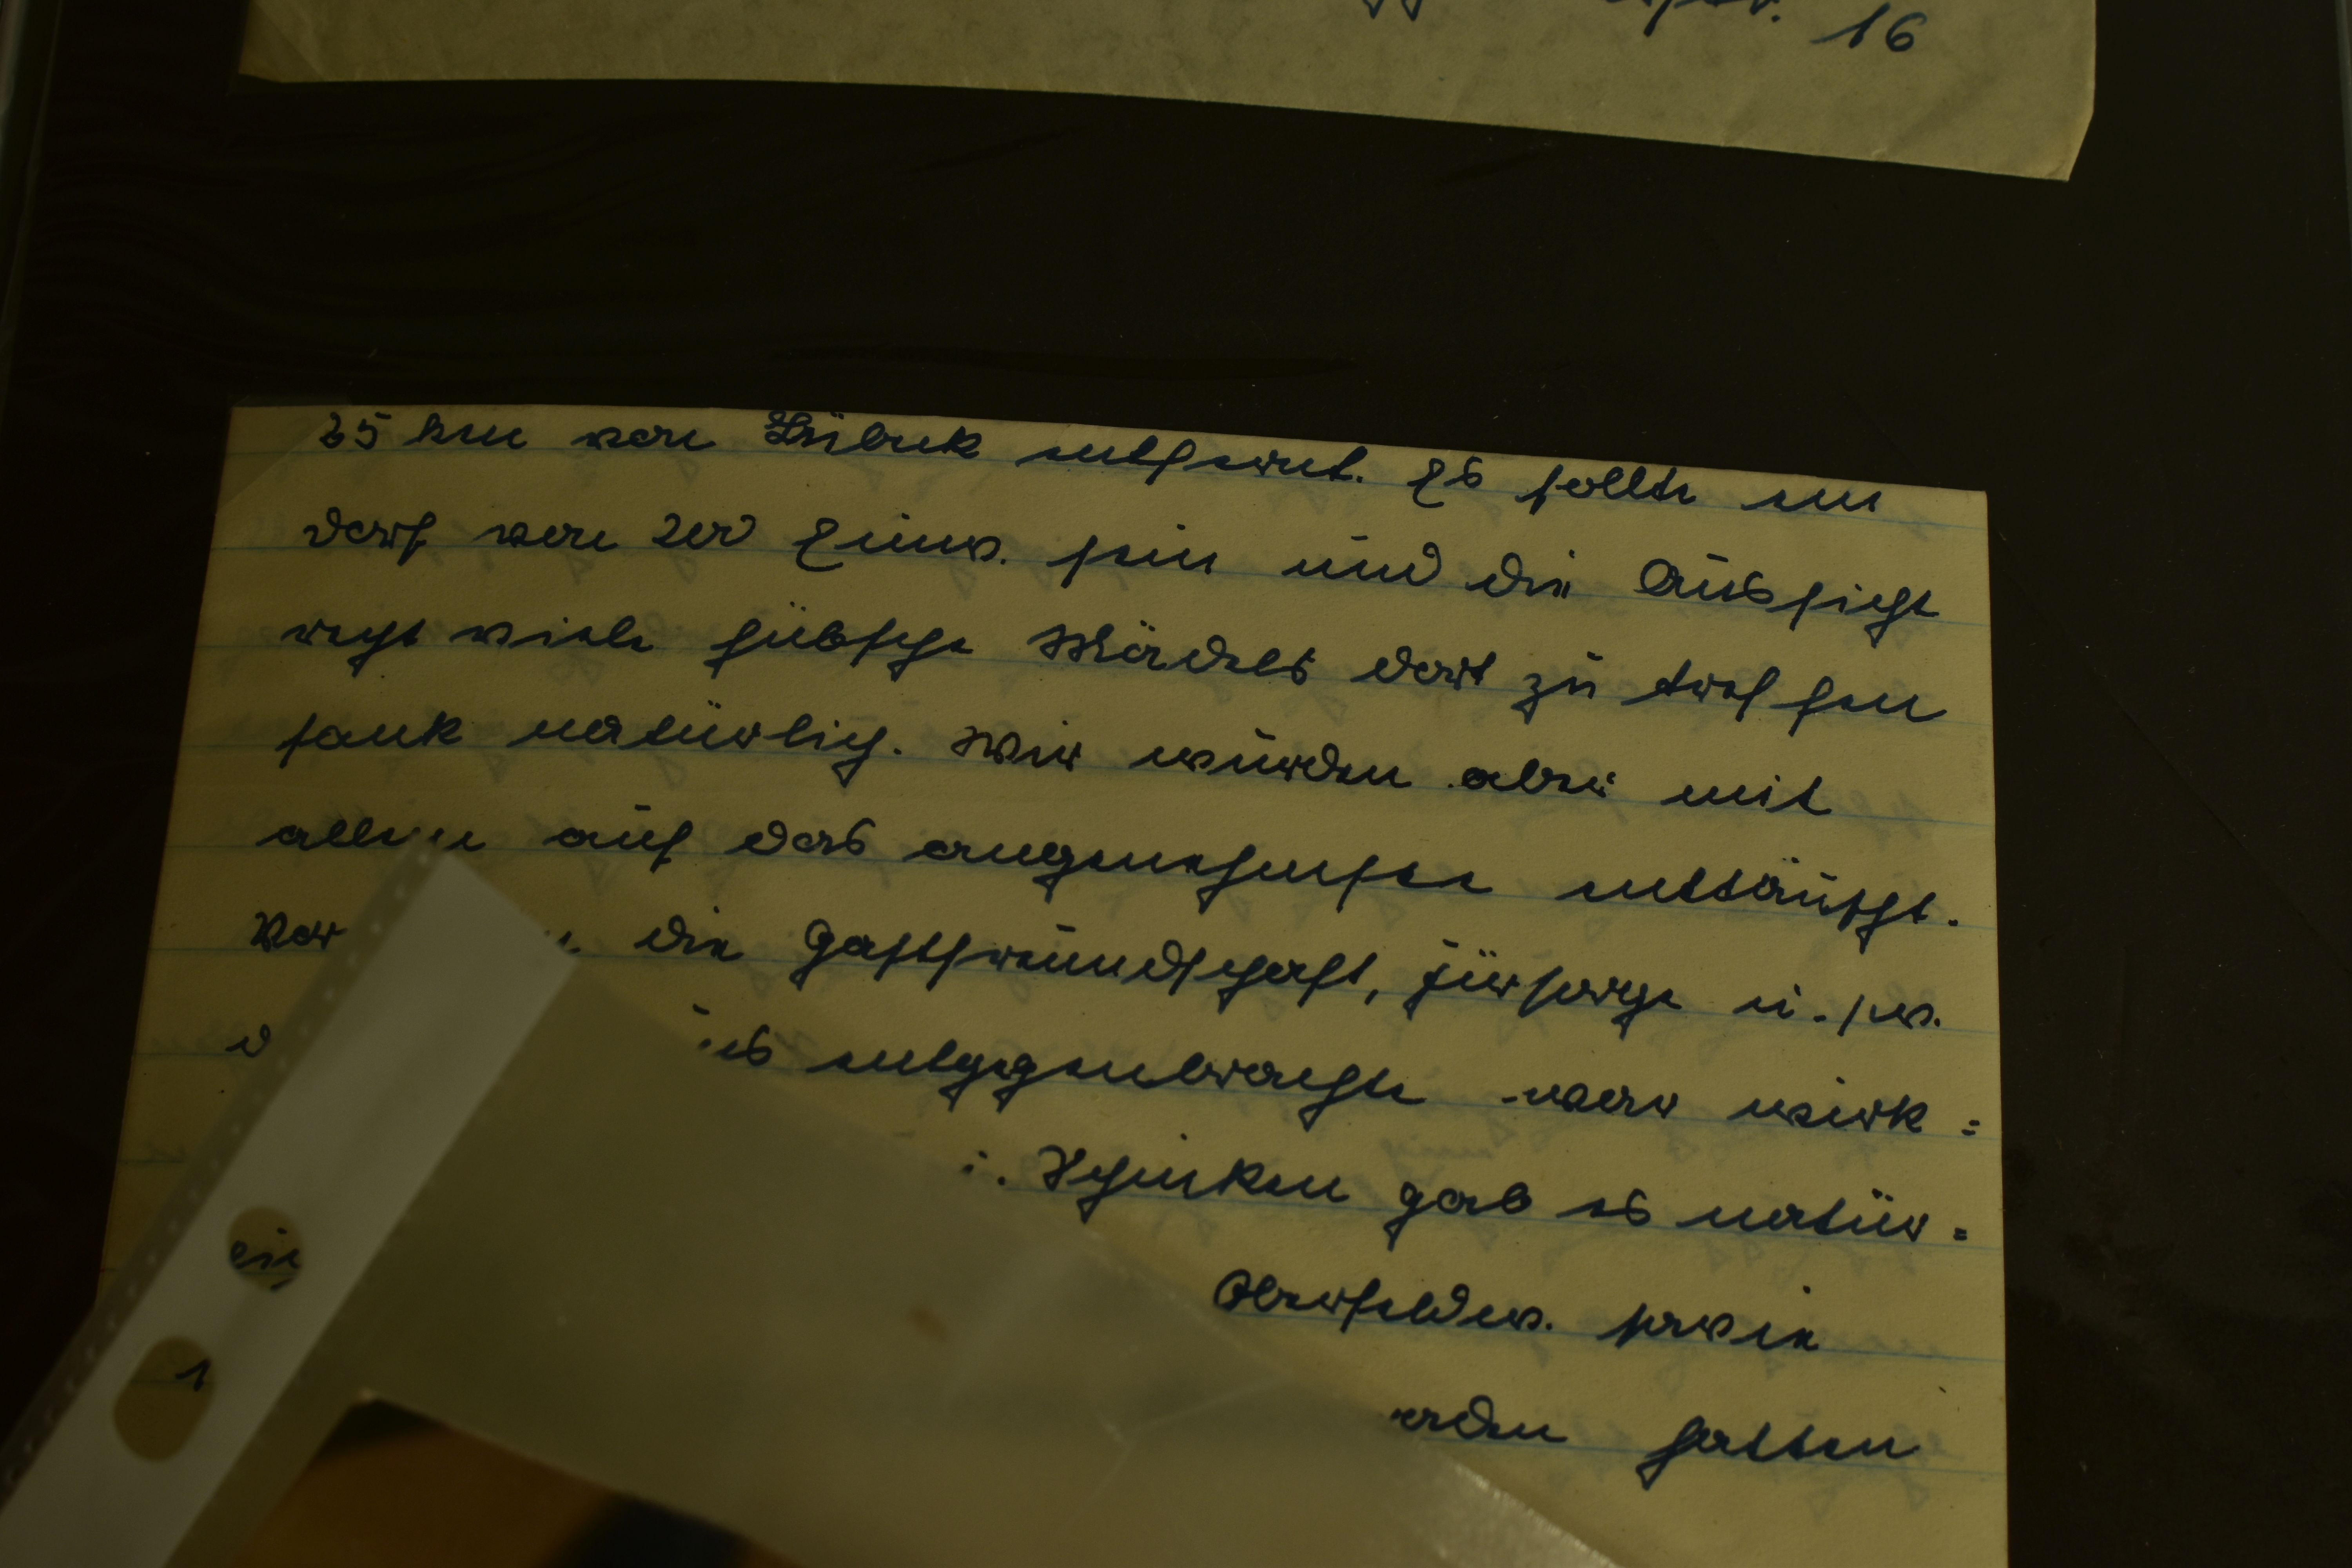 16
25 km von Lübeck entfernt. Es sollte ein
Dorf von 200 Einw. sein und die Aussicht
recht viele hübsche Mädels dort zu treffen
sank natürlich. Wir wurden aber mit
allem auf das angenehmste enttäuscht.
Vor die Gastfreundschaft, Fürsorge u.s.w.
entgegenbrachte war wirk=
Schinken gab es natür=
Oberfeldw. sowie
hatten